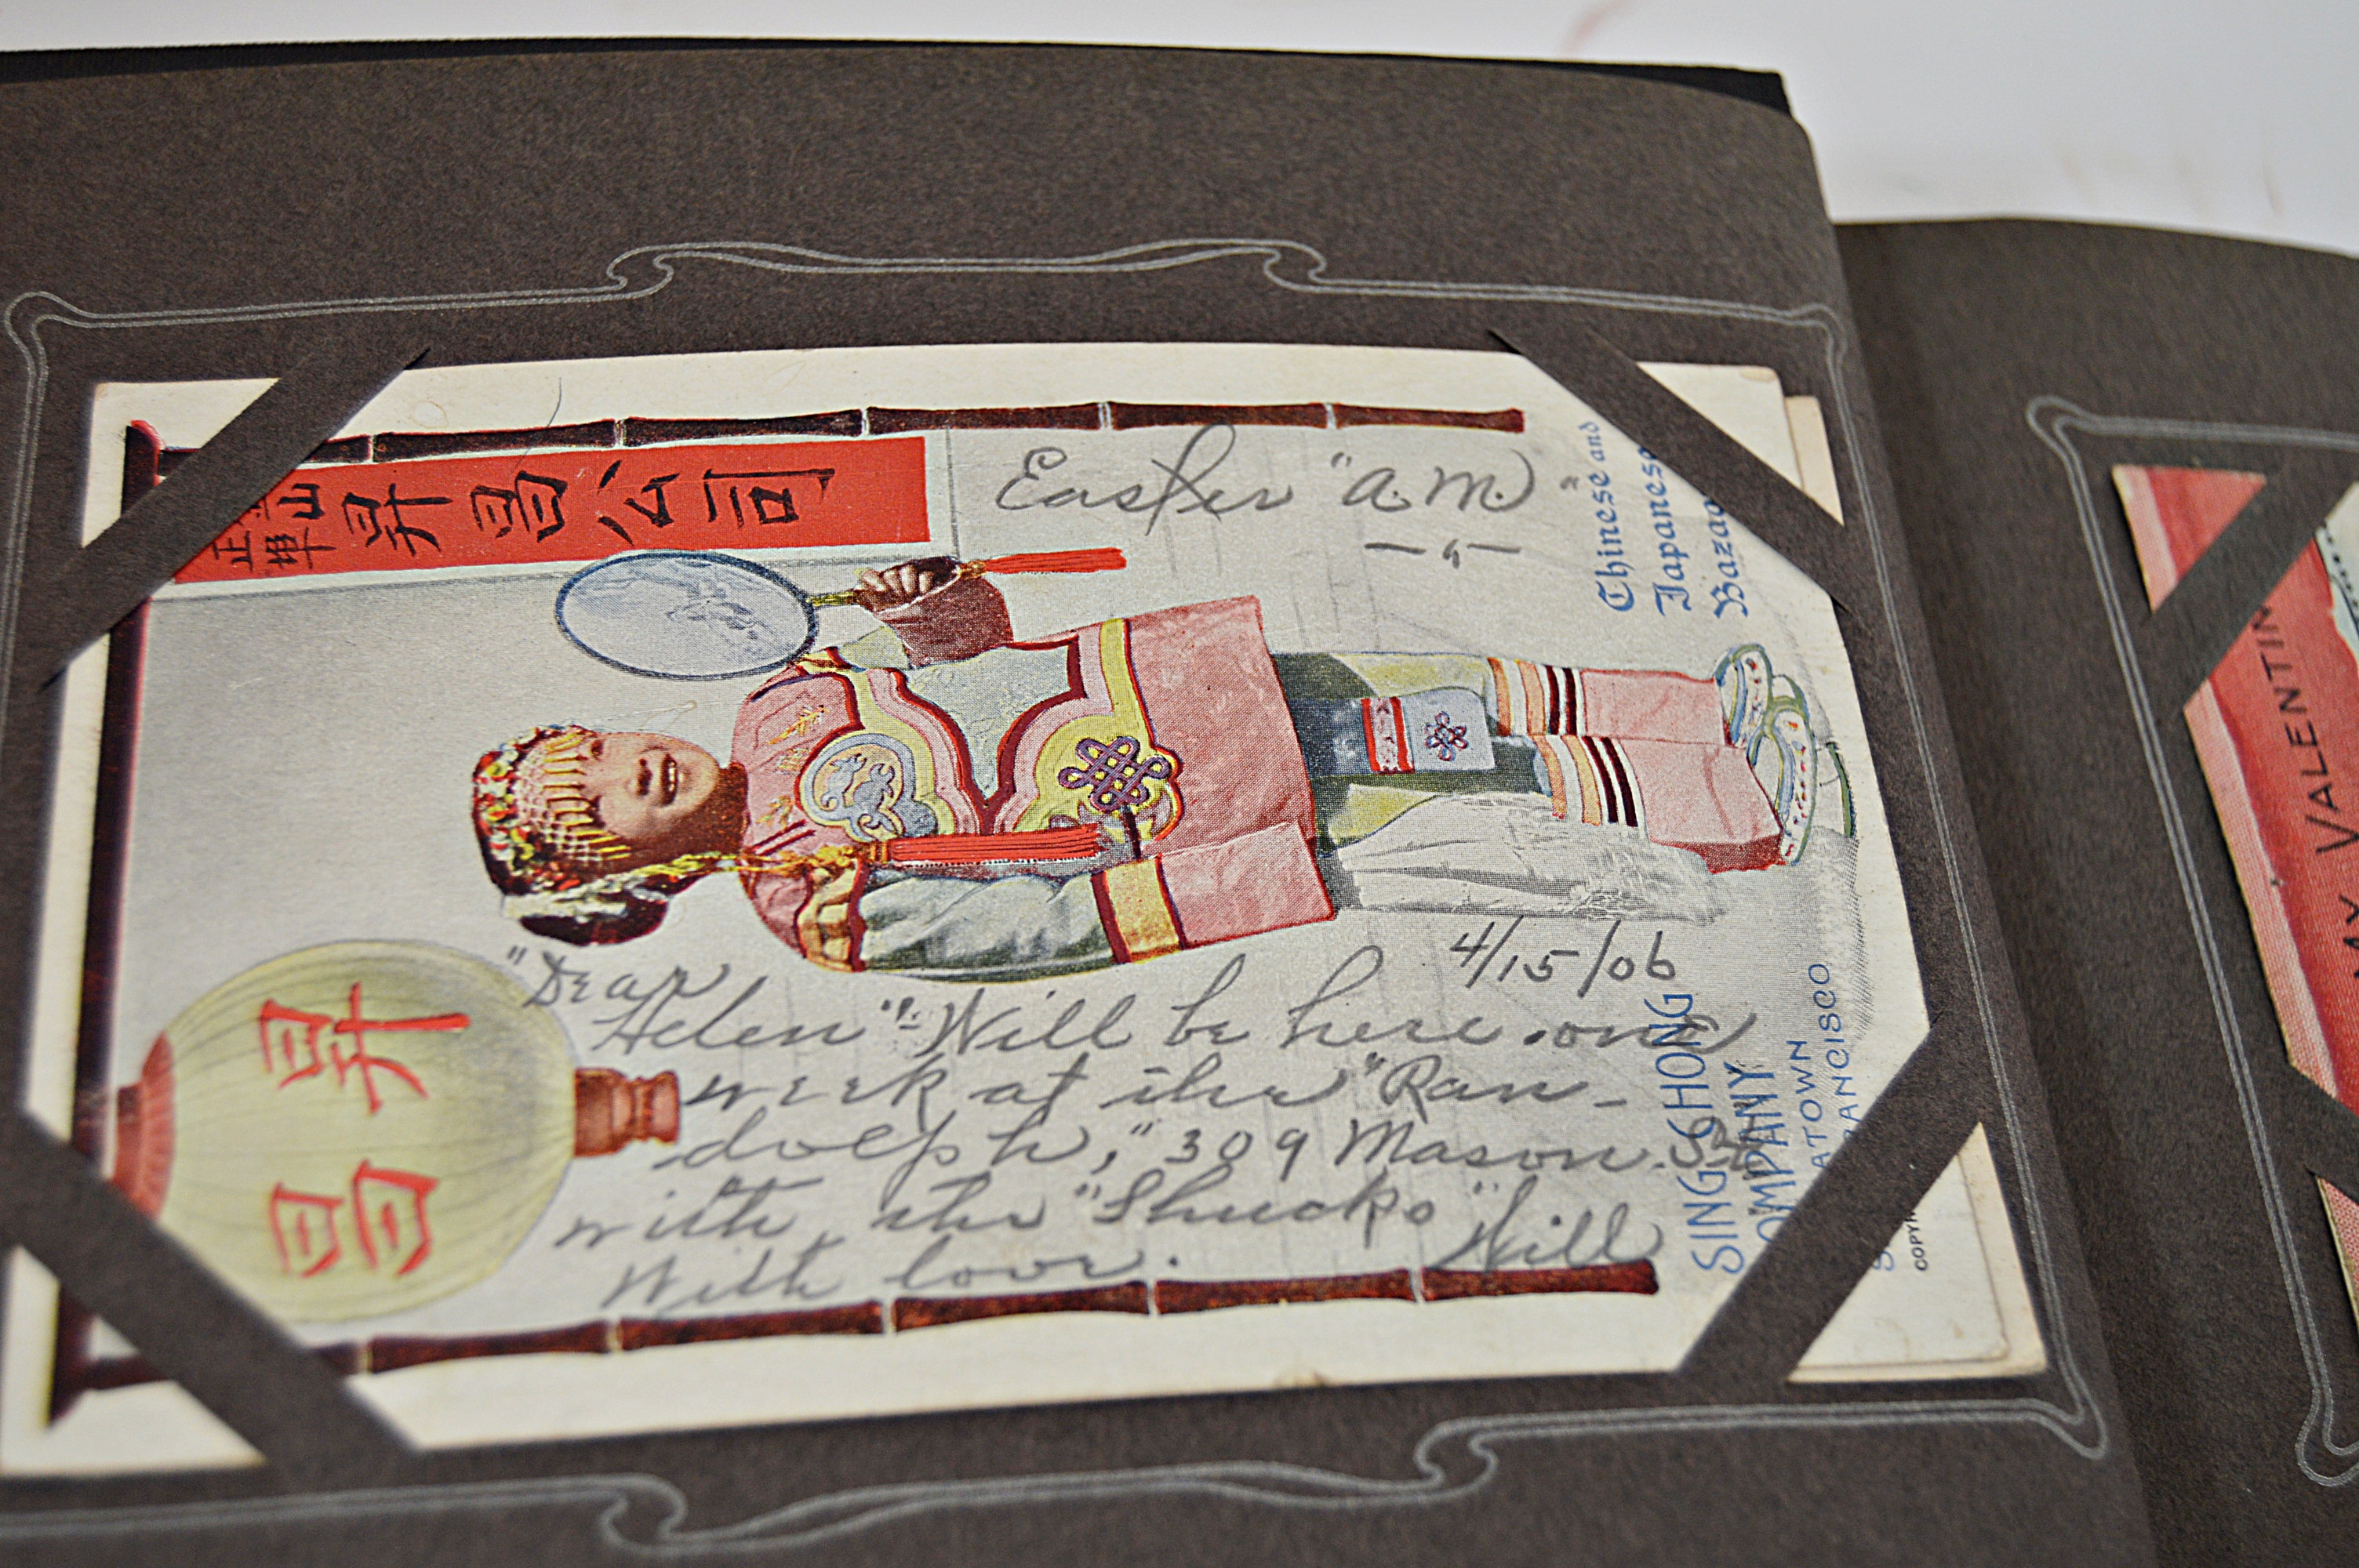 金山
正埠
昇昌公司
Easter "A.M."
Chinese and
Japanese
Bazaa
4/15/06
"Dear
Helen":- Will be here one
week at the "Ran-
dolph," 309 Mason St
with the "Shucks"
With love. Will
昇昌
SING CHONG
COMPANY
ATOWN
RANCISCO
COPYR
MY VALENTIN